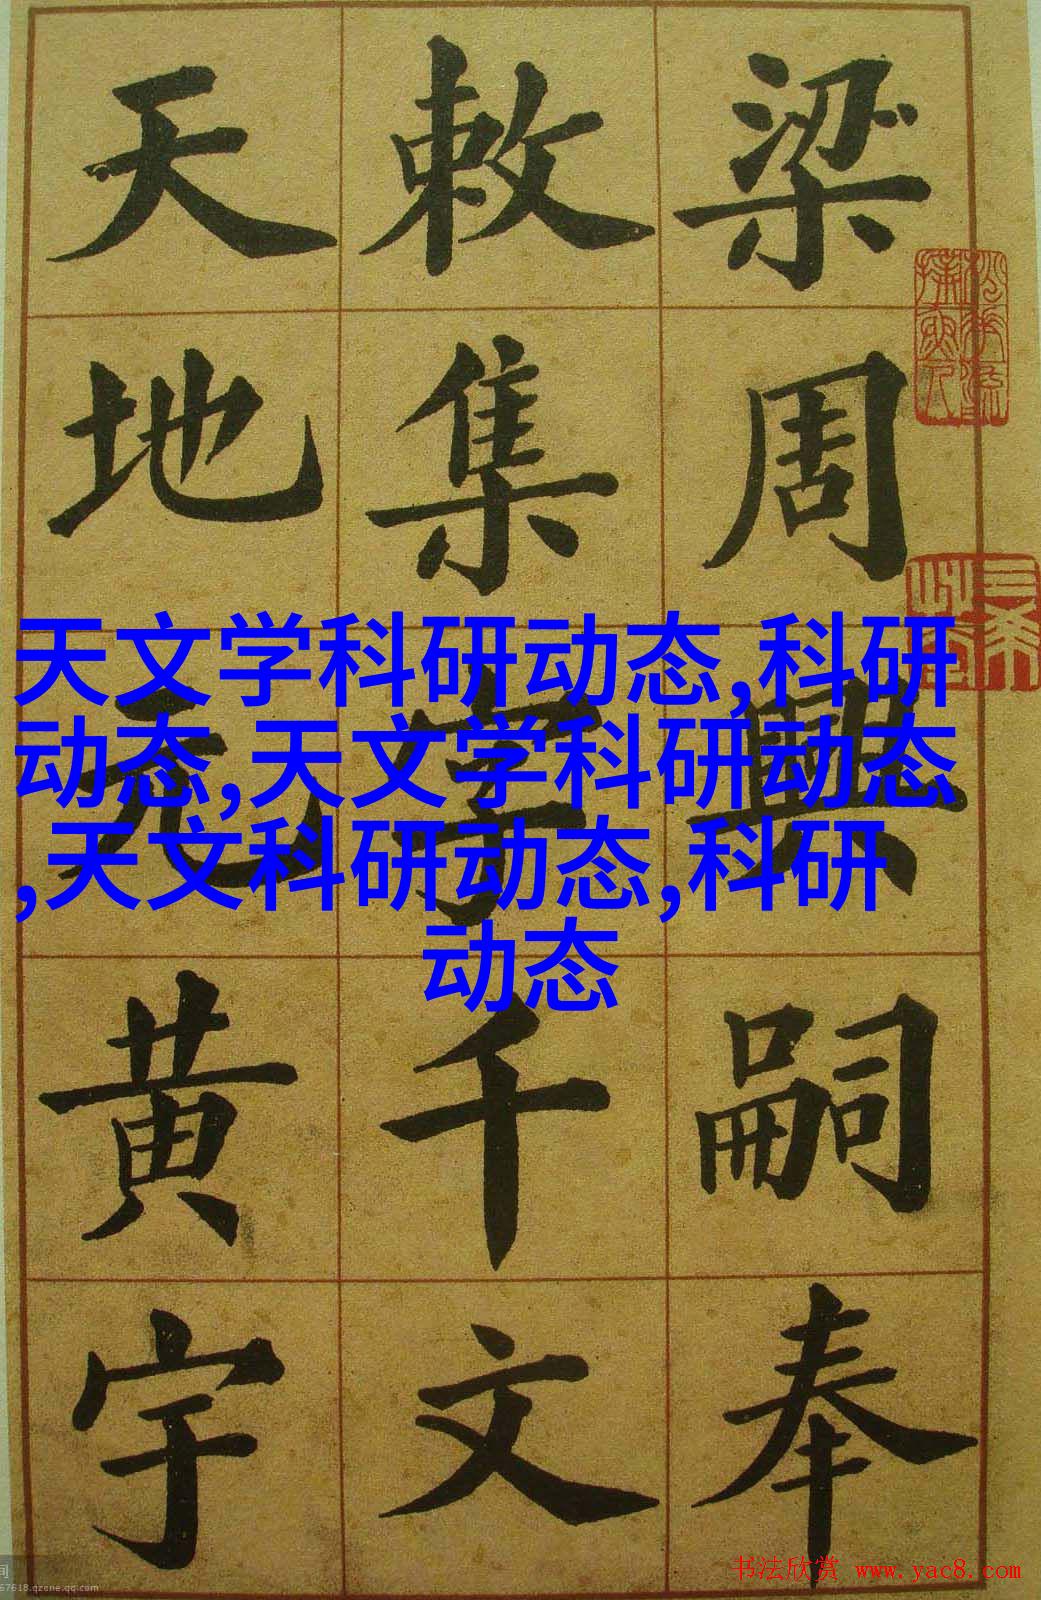 梁周興嗣奉
敕集字千文
天地元黄宇
天文学科研动态,科研
动态,天文学科研动态
,天文科研动态,科研
动态
书法欣赏 www.yac8.com
67618.qzone.qq.com